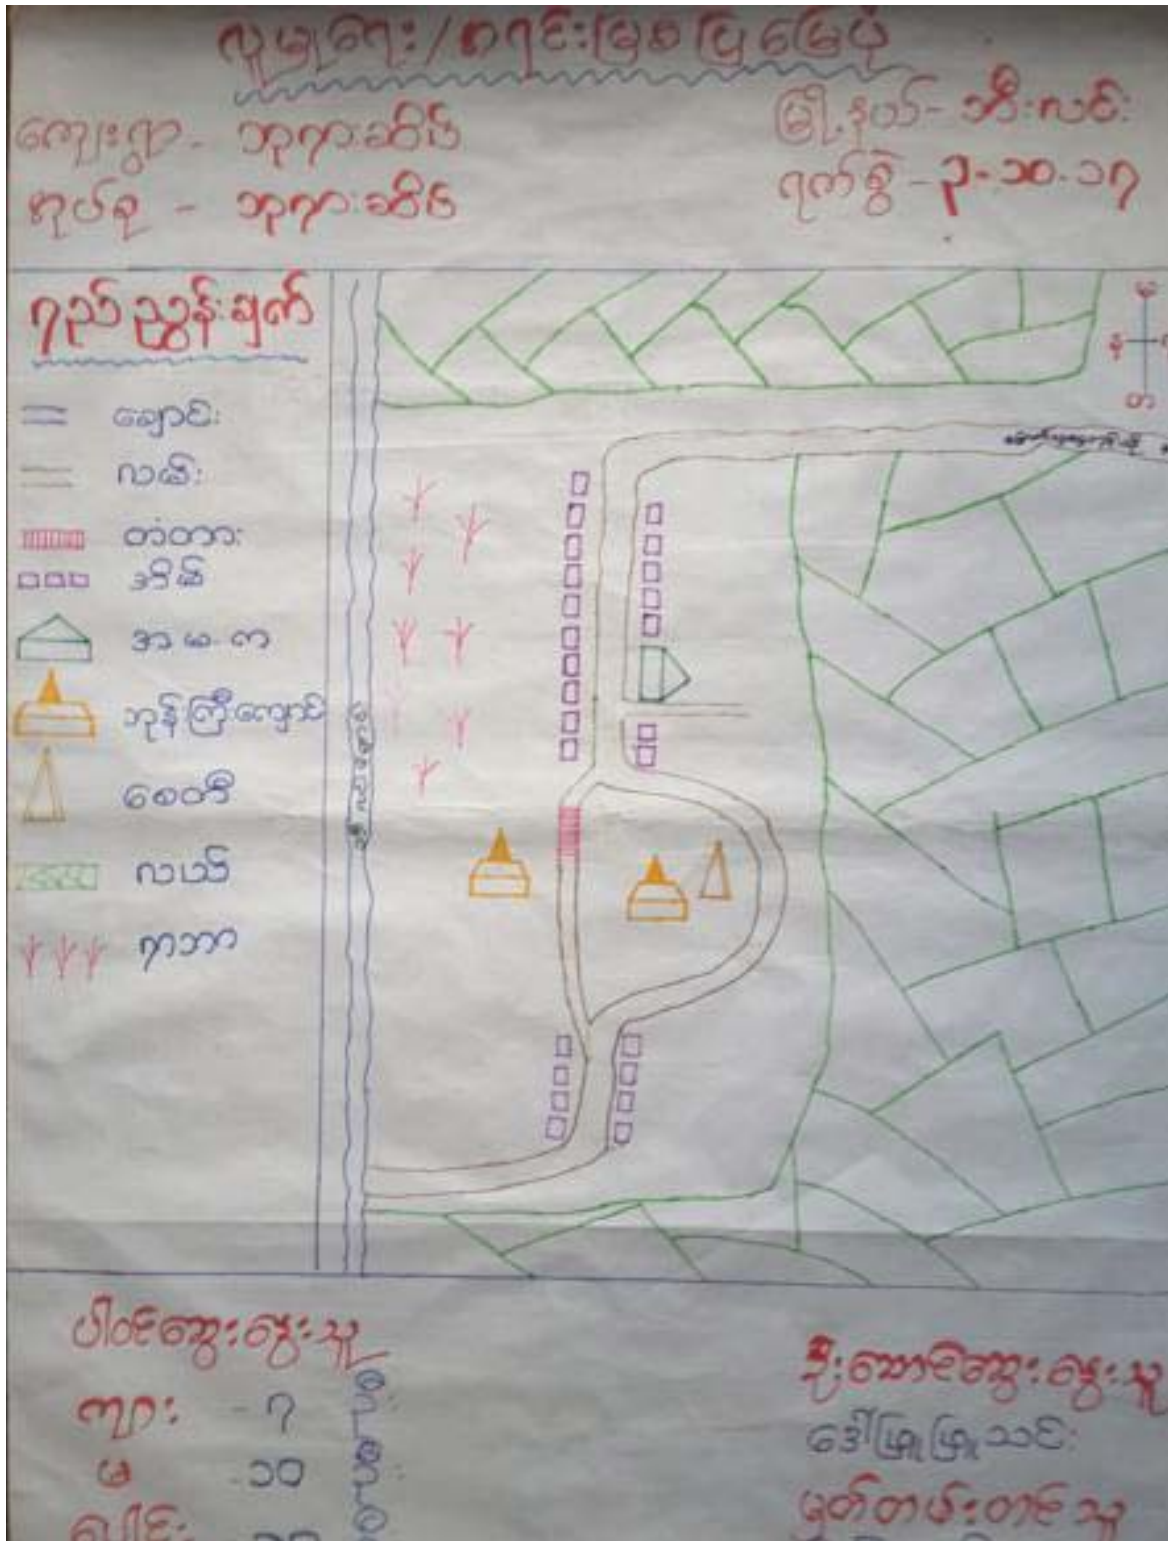 လူမှုရေး/စာရင်းမြစ်ပြမြေပုံ
ကျေးရွာ - ဘုရားဆိပ်
အုပ်စု - ဘုရားဆိပ်
မြို့နယ် - ဘီးလင်း
ရက်စွဲ - ၃-၁၀-၁၇
ရည်ညွှန်းချက်
ချောင်း
လမ်း
တံတား
အိမ်
အ.မ.က
ဘုန်းကြီးကျောင်း
စေတီ
လယ်
ရာဘာ
မ
န
တ
ပါဝင်ဆွေးနွေးသူ
ကျား - ၇ ဦး
မ - ၁၀ ဦး
ပေါင်း
ဦးဆောင်ဆွေးနွေးသူ
ဒေါ်ဖြူဖြူသင်း
မှတ်တမ်းတင်သူ